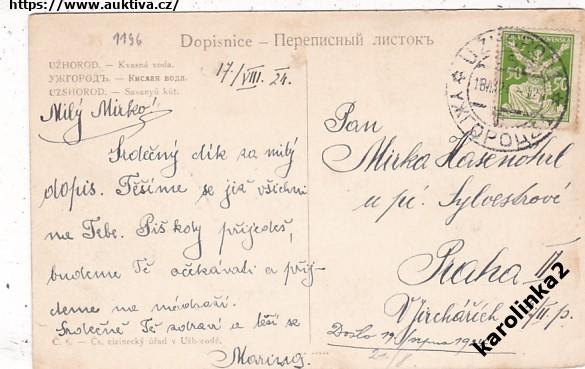 https://www.auktiva.cz/
1196
Dopisnice – Переписный листокъ
UŽHOROD. – Kvasná voda.
УЖГОРОДЪ. – Кислая вода.
UZSHOROD. – Savanyú kút.
17/VIII. 24.
Milý Mirko!
Srdečný dík za milý
dopis. Těšíme se již všichni
na Tebe. Piš kdy přijedeš,
budeme Tě očekávati a přij-
deme na nádraží.
Srdečně Tě zdraví a těší se
Č. 6. – Čs. cizinecký úřad v Užhorodě.
50
50
Pan
Mirka Hasenohrl
u pí. Sylvestrové
Praha II
Vjirchářích
Došlo 19. srpna 1924
karolinka2